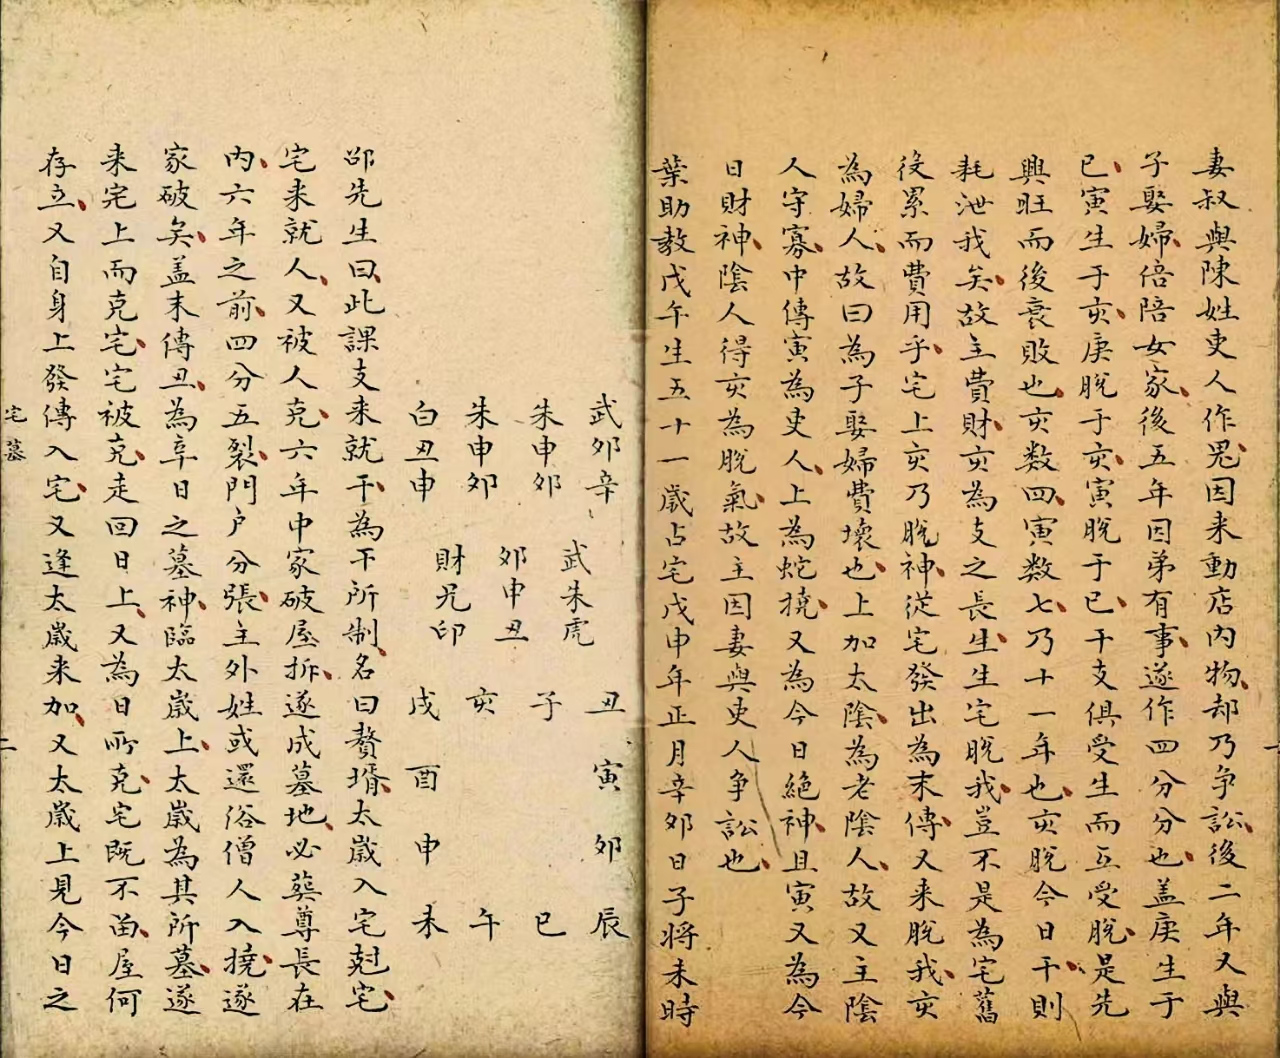 妻叔與陳姓吏人作鬼因来動店内物却乃争訟後二年又與
子娶婦倍陪女家後五年因弟有事遂作四分分也盖庚生于
巳寅生于亥庚脫于亥寅脫于巳干支俱受生而互受脫是先
興旺而後衰敗也亥数四寅数七乃十一年也亥脫今日干則
耗泄我矣故主費財亥為支之長生生宅脫我豈不是為宅舊
後累而費用乎宅上亥乃脫神從宅發出為末傳又来脫我亥
為婦人故曰為子娶婦費壞也上加太陰為老陰人故又主陰
人守寡中傳寅為吏人上為蛇撓又為今日絕神且寅又為今
日財神陰人得亥為脫氣故主因妻與吏人争訟也
葉助教戊午生五十一歲占宅戊申年正月辛卯日子將未時
武卯辛
朱申卯
朱申卯
白丑申
武朱虎
卯申丑
財兄印
丑寅卯辰
子巳
亥午
戌酉申未
邵先生曰此課支来就干為干所制名曰贅壻太歲入宅尅宅
宅来就人又被人克六年中家破屋拆遂成墓地必葬尊長在
内六年之前四分五裂門户分張主外姓或還俗僧人入撓遂
家破矣盖末傳丑為辛日之墓神臨太歲上太歲為其所墓遂
来宅上而克宅宅被克走回日上又為日所克宅既不畱屋何
存立又自身上發傳入宅又逢太歲来加又太歲上見今日之
宅墓
二